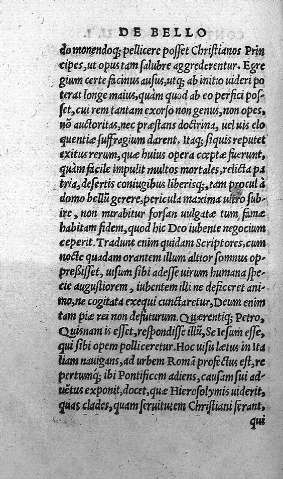 DE BELLO
do monendoq; pellicere posset Christianos Prin
cipes, ut opus tam salubre aggrederentur. Egre
gium certe facinus ausus, utq; ab initio uideri po
terat longe maius, quàm quod ab eo perfici pos-
set, cui rem tantam exorso non genus, non opes,
nõ auctoritas, nec præstans doctrina, uel uis elo
quentiæ suffragium darent. Itaq; siquis reputet
exitus rerum, quæ huius opera cœptæ fuerunt,
quàm facile impulit multos mortales, relicta pa
tria, desertis coniugibus liberisq; tam procul à
domo bellũ gerere, pericula maxima ultro subi-
ire, non mirabitur forsan uulgatæ tum famæ
habitam fidem, quod hic Deo iubente negocium
cœperit. Tradunt enim quidam Scriptores, cum
nocte quadam orantem illum altior somnus op
pressisset, uisum sibi adesse uirum humana spe
cie augustiorem, iubentem illi ne deficeret ani-
mo, ne cogitata exequi cunctaretur. Deum enim
tam piæ rei non defuturum. Quærentiq; Petro,
Quisnam is esset, respondisse illũ, Se Iesum esse,
qui sibi opem polliceretur. Hoc uisu lætus in Ita
liam nauigans, ad urbem Romã profectus est, re
pertumq; ibi Pontificem adiens, causam sui ad
uentus exponit, docet, quæ Hierosolymis uiderit,
quas clades, quam seruitutem Christiani ferant,
qui